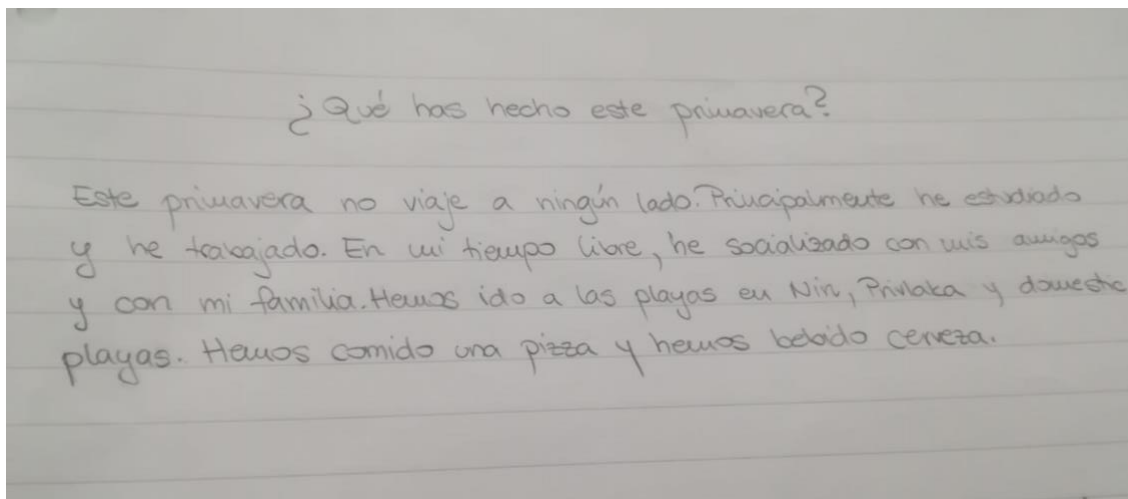 ¿Qué has hecho este primavera?
Este primavera no viaje a ningún lado. Principalmente he estudiado
y he trabajado. En mi tiempo libre, he socializado con mis amigos
y con mi familia. Hemos ido a las playas en Nin, Privlaka y domestic
playas. Hemos comido una pizza y hemos bebido cerveza.